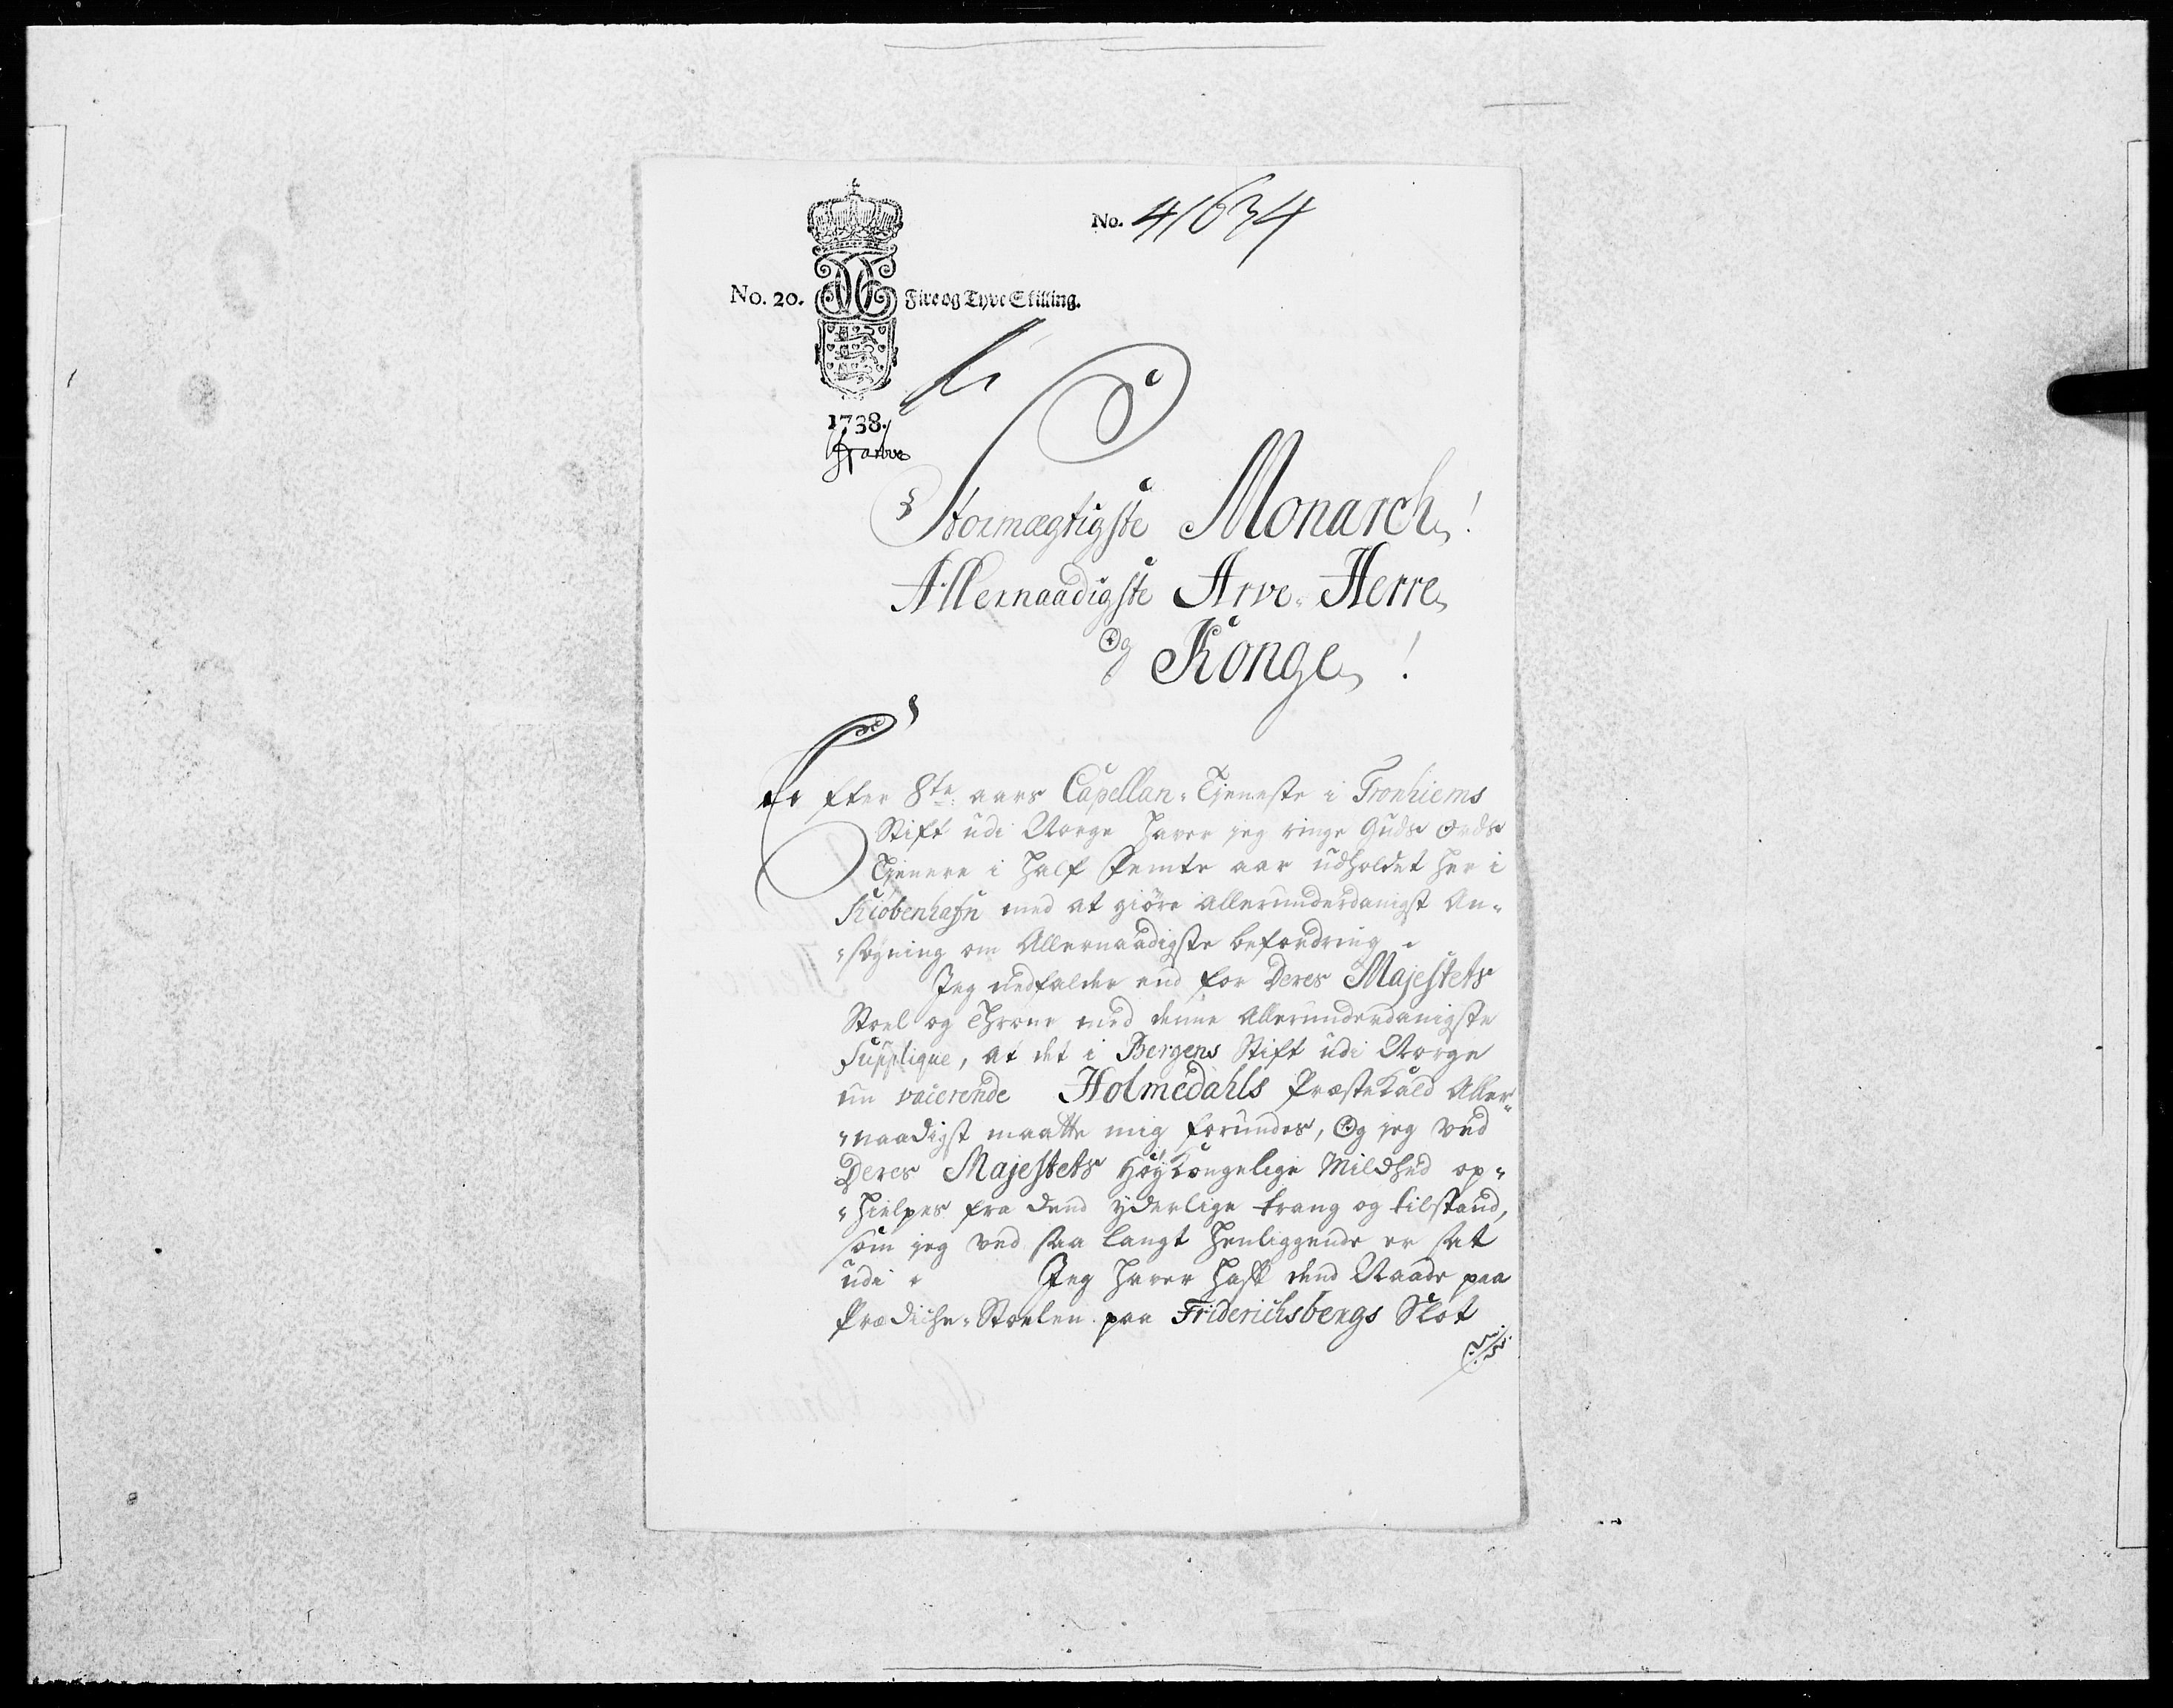 No. 41634
No. 20. Fire og Tyve Skilling.
1738.
Stormægtigste Monarch!
Allernaadigste Arve-Herre
Og Konge!
Efter 8te aars Capellan-Tieneste i Tronhiems
Stift udi Norge haver jeg ringe Guds Ords
Tienere i half Femte aar udholdet her i
Kiøbenhafn med at giøre allerunderdanigst An-
-søgning om Allernaadigste befordring.
Jeg nedfalder end for Deres Majestets
Stoel og Throne med denne Allerunderdanigste
Supplique, at det i Bergens Stift udi Norge
nu vacerende Holmedahls Præstekald Aller-
-naadigst maatte mig forundes, Og jeg ved
Deres Majestets HøyKongelige Mildhed op-
-hielpes fra dend yderlige trang og tilstand,
som jeg ved saa langt henliggende er sat
udi. Jeg haver haft dend Naade paa
Prædiche-Stoelen paa Friderichsbergs Slot